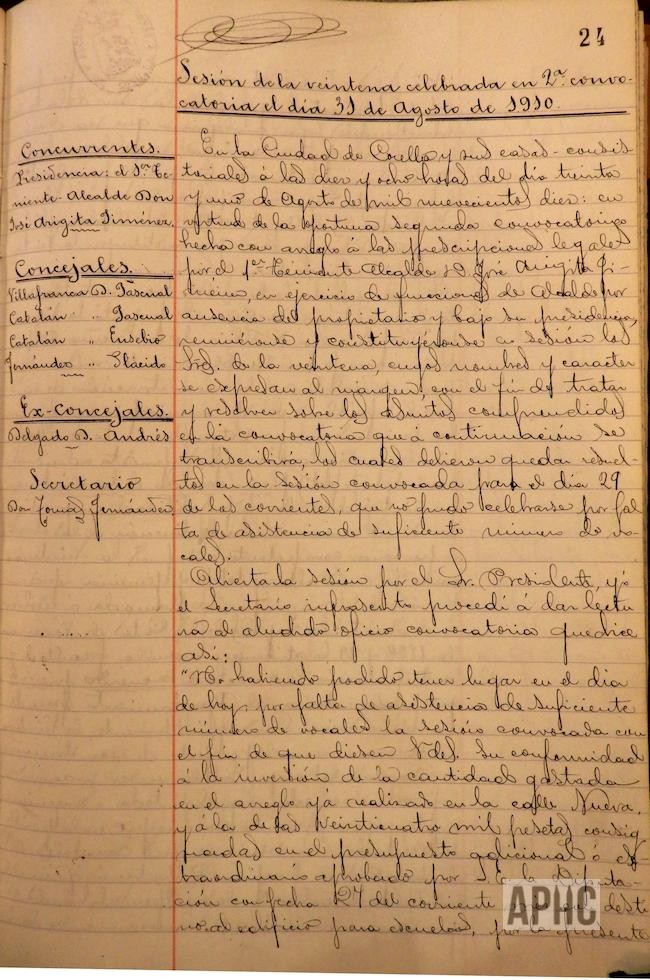 24
Sesión de la veintena celebrada en 2ª convo-
catoria el día 31 de Agosto de 1910.
Concurrentes.
Presidencia: el 1er Te-
niente-Alcalde Don
José Arigita Jiménez.
Concejales.
Villafranca D. Pascual
Catalán " Pascual
Catalán " Eusebio
Fernández " Plácido
Ex-Concejales.
Delgado D. Andrés
Secretario
Don Tomás Fernández
En la Ciudad de Corella y sus casas-consis-
toriales á las diez y ocho horas del día treinta
y uno de Agosto de mil nuevecientos diez: en
virtud de la oportuna segunda convocatoria
hecha con arreglo á las prescripciones legales
por el 1er Teniente Alcalde D. José Arigita Ji-
ménez, en ejercicio de funciones de Alcalde por
ausencia del propietario y bajo su presidencia,
reuniéronse y constituyéronse en sesión los
Sres. de la veintena, cuyos nombres y caracter
se expresan al margen, con el fin de tratar
y resolver sobre los asuntos comprendidos
en la convocatoria que á continuación se
transcribirá, los cuales debieron quedar resuel-
tos en la sesión convocada para el día 29
de los corrientes, que no pudo celebrarse por fal-
ta de asistencia de suficiente número de vo-
cales.
Abierta la sesión por el Sr. Presidente, yó
el Secretario infrascrito procedí á dar lectu-
ra al aludido oficio convocatoria que dice
así:
"No habiendo podido tener lugar en el día
de hoy por falta de asistencia de suficiente
número de vocales la sesión convocada con
el fin de que diesen Vdes. su conformidad
á la inversión de la cantidad gastada
en el arreglo yá realizado en la calle Nueva,
y á la de las veinticuatro mil pesetas consig-
nadas en el presupuesto adicional ó es-
traordinario aprobado por S.E. la Diputa-
ción con fecha 27 del corriente mes con desti-
no al edificio para escuelas, por la presente
APHC